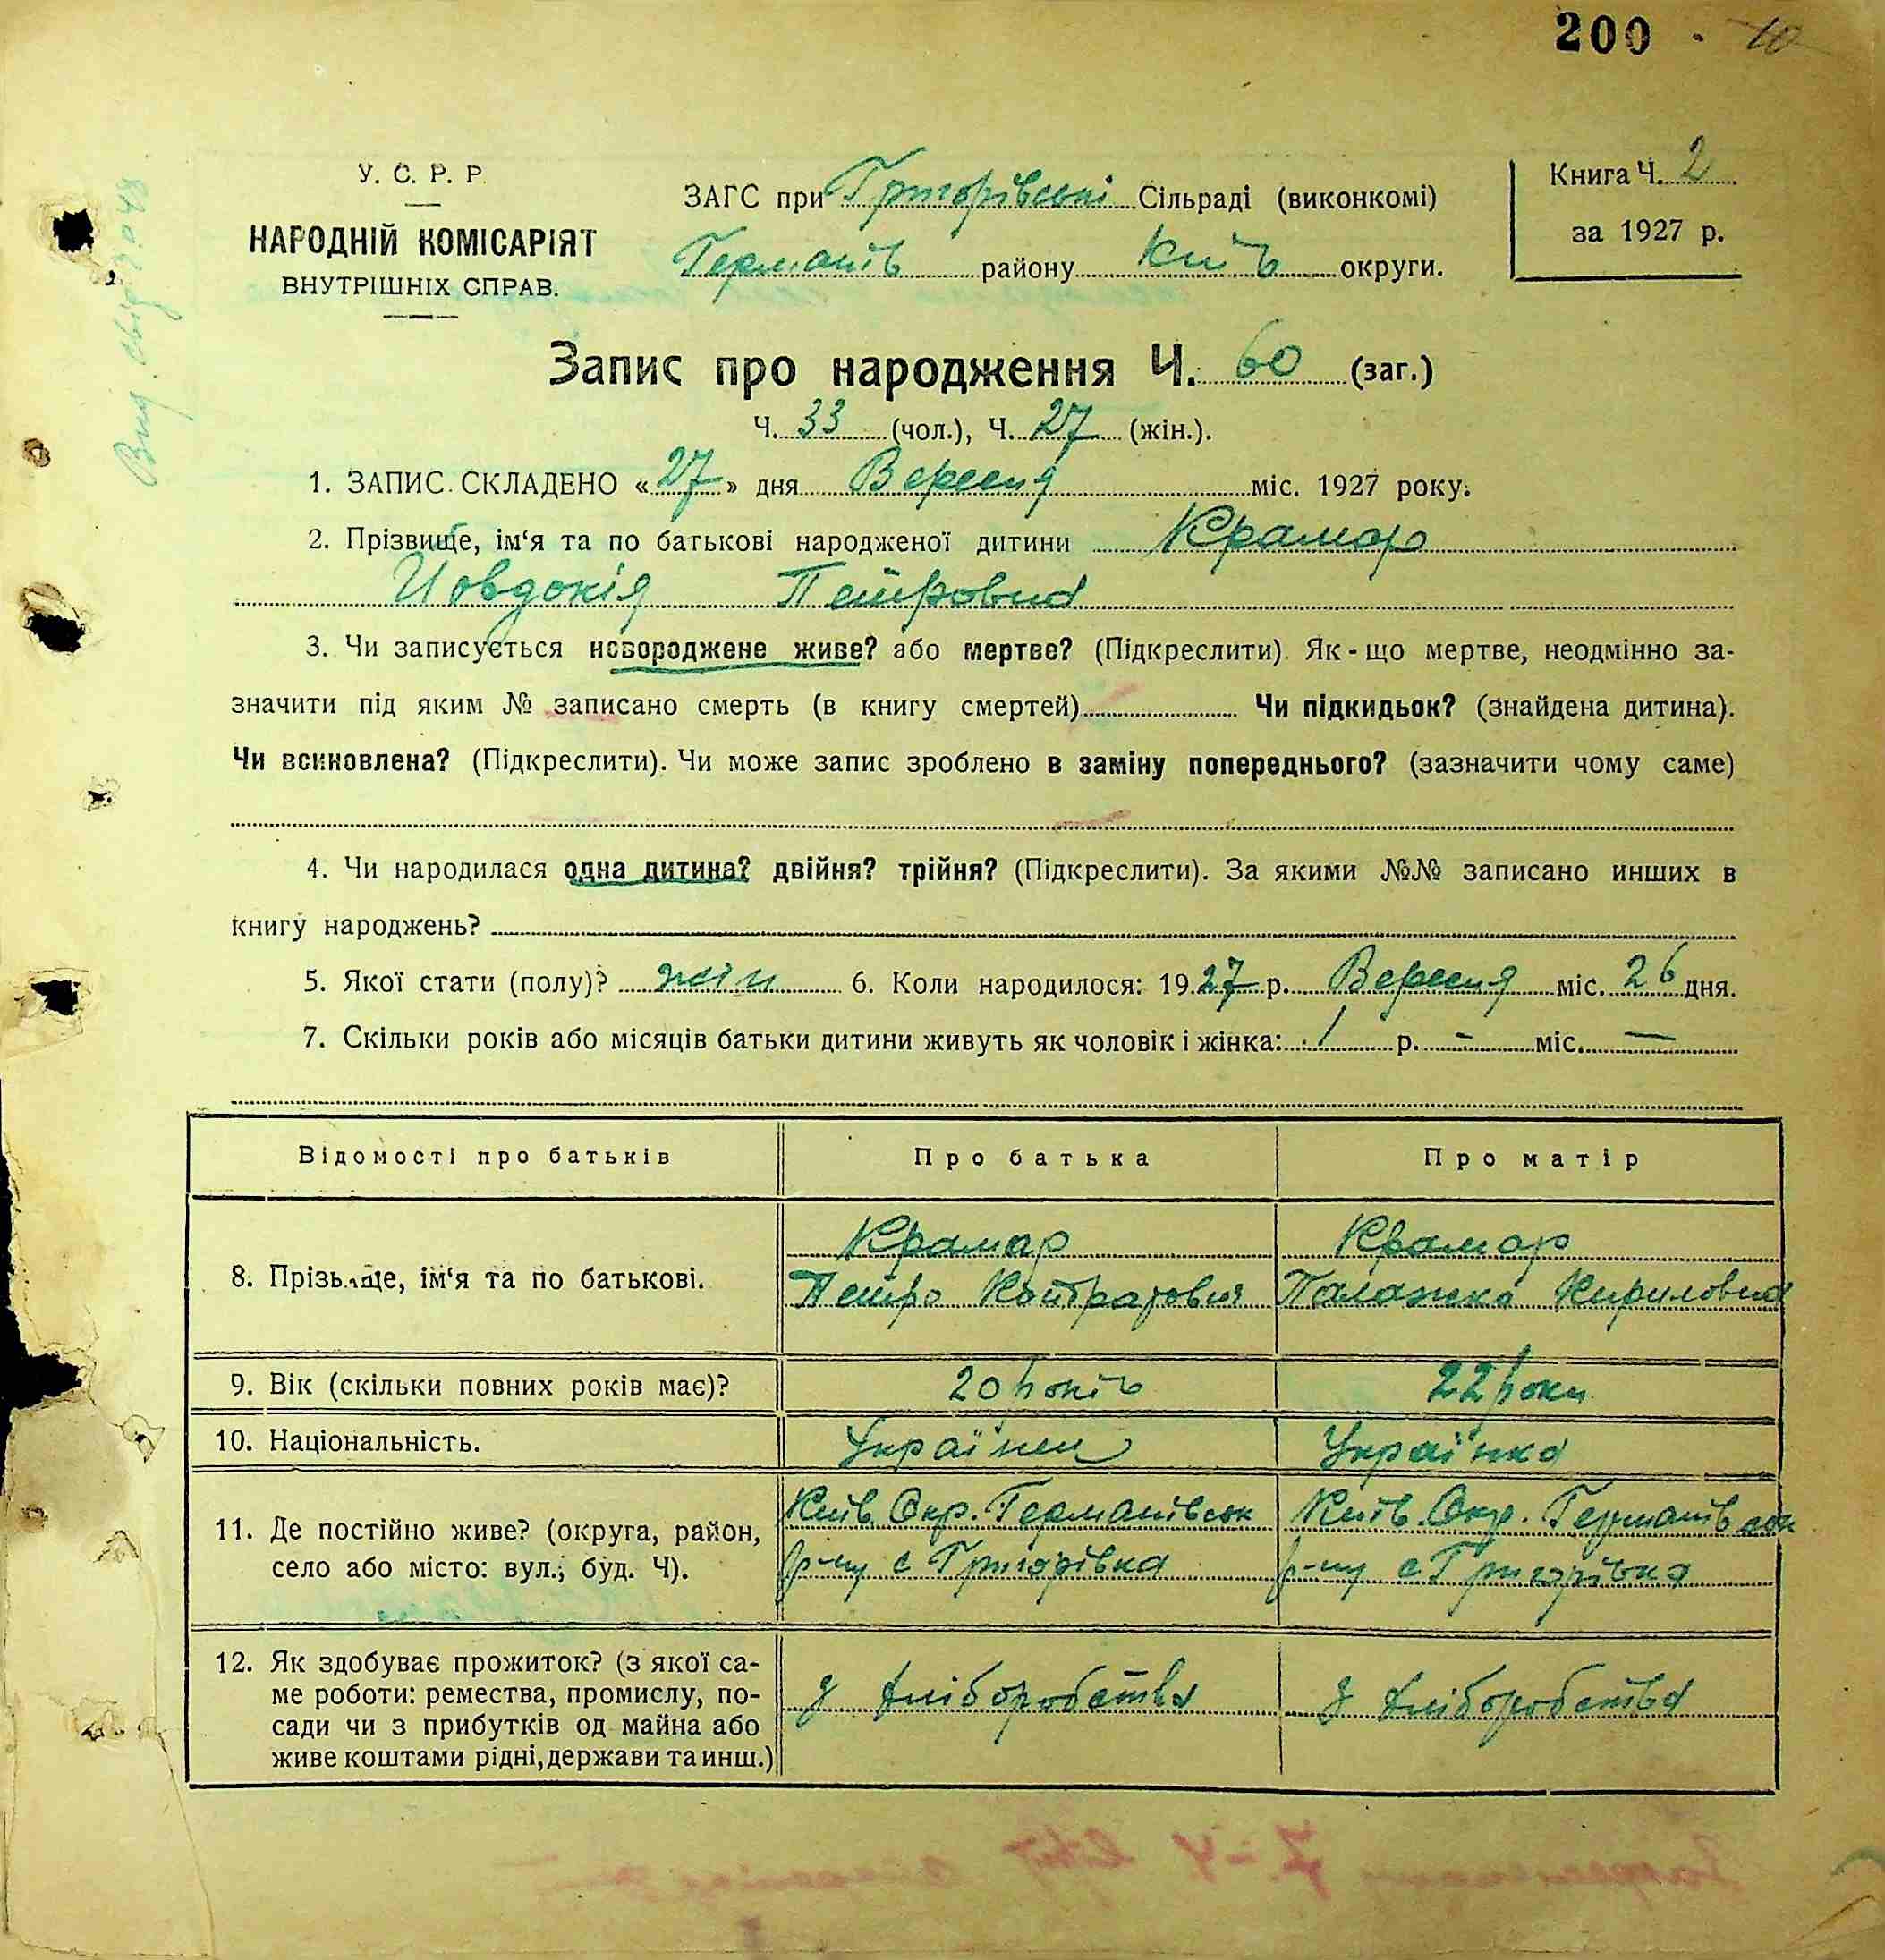 200
У. С. Р. Р.
НАРОДНІЙ КОМІСАРІЯТ
ВНУТРІШНІХ СПРАВ.
ЗАГС при Григорівські Сільраді (виконкомі)
Германів району Київ округи.
Книга Ч. 2
за 1927 р.
Запис про народження Ч. 60 (заг.)
Ч. 33 (чол.), Ч. 27 (жін.).
1. ЗАПИС СКЛАДЕНО «27» дня Вересня міс. 1927 року.
2. Прізвище, ім‘я та по батькові народженої дитини Крамар
Йовдокія Петровна
3. Чи записується новороджене живе? або мертве? (Підкреслити). Як-що мертве, неодмінно за-
значити під яким № записано смерть (в книгу смертей) Чи підкидьок? (знайдена дитина).
Чи всиновлена? (Підкреслити). Чи може запис зроблено в заміну попереднього? (зазначити чому саме)
4. Чи народилася одна дитина? двійня? трійня? (Підкреслити). За якими №№ записано инших в
книгу народжень?
5. Якої стати (полу)? жін 6. Коли народилося: 1927 р. Вересня міс. 26 дня.
7. Скільки років або місяців батьки дитини живуть як чоловік і жінка: 1 р. - міс. —
Відомості про батьків Про батька Про матір
8. Прізвище, ім‘я та по батькові.
Крамар
Петро Контратович
Крамар
Палажка Кириловна
9. Вік (скільки повних років має)? 20 років 22 роки
10. Національність. Українец Українка
11. Де постійно живе? (округа, район,
село або місто: вул.; буд. Ч).
Київ. Окр. Германівськ
р-ну с Григорівка
Київ. Окр. Германівськ
р-ну с Григорівка
12. Як здобуває прожиток? (з якої са-
ме роботи: ремества, промислу, по-
сади чи з прибутків од майна або
живе коштами рідні, держави та инш.)
З хліборобства
З хліборобства